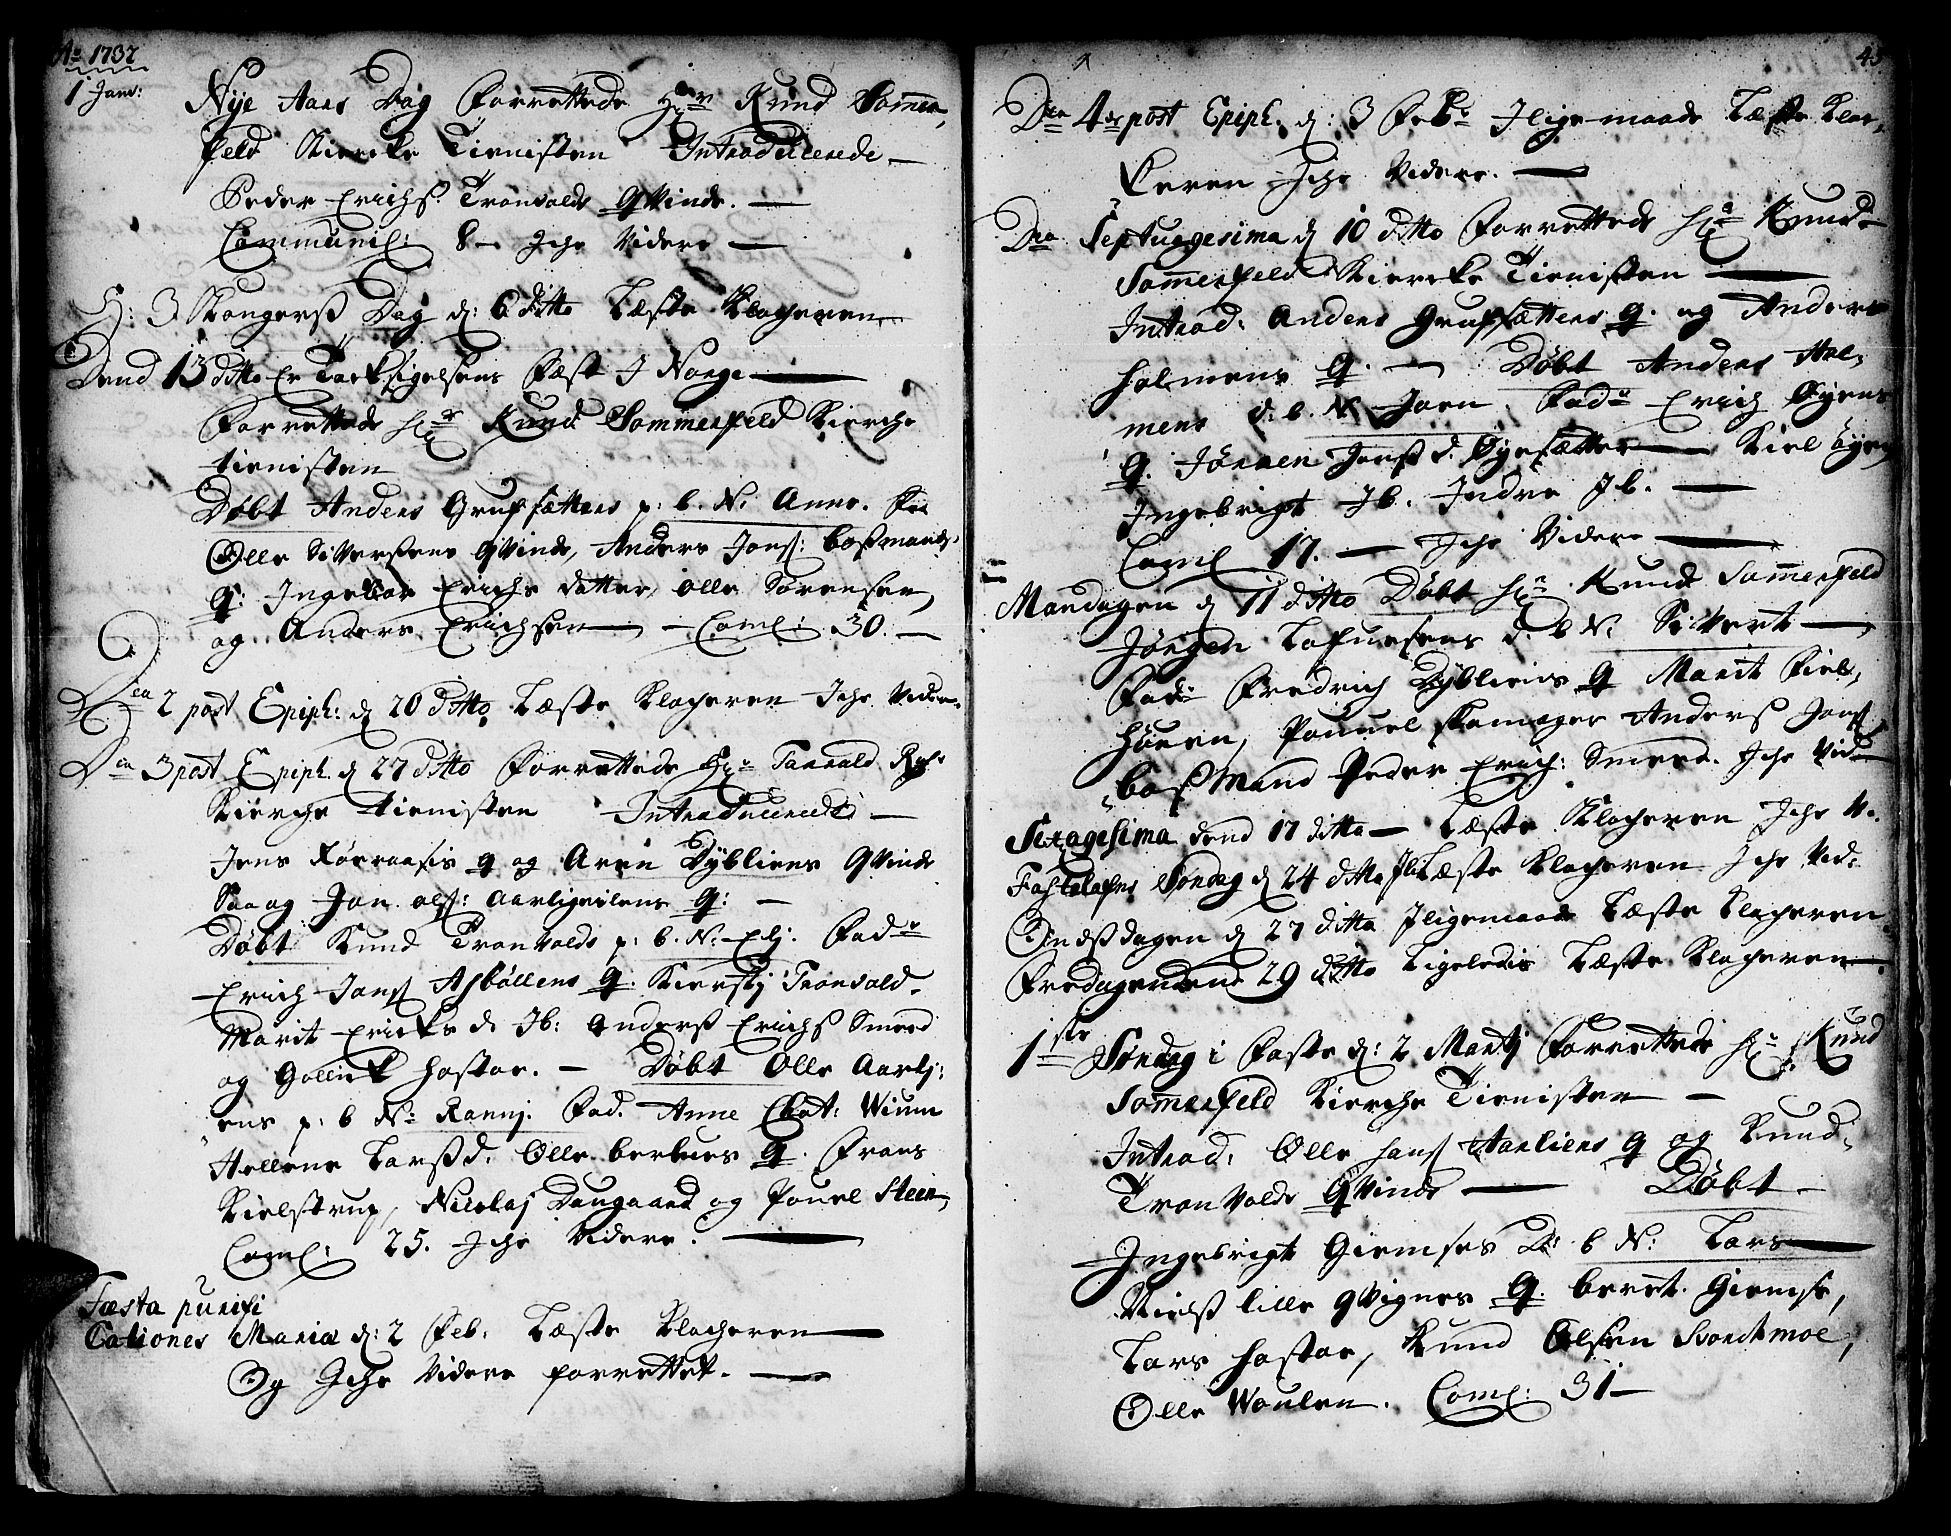 Ao 1737
1 Janv: Nye Aars Dag Forrettede Hr Knud Sommer,
feld Kiercke Tienisten Introducerede —
Peder Erichs. Tronvolds Qvinde. —
Communic: 8 — Iche Videre —
H: 3 Kongers Dag d: 6 ditto Læste Klocheren
Dend 13 ditto Er Tacksigelsens Fæst I Norge —
Forrettede Hr Knud Sommerfeld Kierche
tienisten
Døbt Anders Grufsættens p: b. N. Anne.
Olle Siversens Qvinde, Anders Jons: bosmands
q: Ingebor Erichs datter, olle Sørensen,
og Anders Erichsen — Coml: 30. —
Dca 2 post Epiph: d 20 ditto Læste Klocheren Iche Videre
Dca 3 post Epiph. d 27 ditto Forrettede Hr
Kierche tienisten Introducerede —
Jens q og Aren Dybliens Qvinde
Saa og Jon ols: Aarligeolens q: —
Døbt Knud Tronvolds p: b. N: Elj. Fad
Erich Jons Asbøllens q. Kiersti Tronvold
Marit Ericks d. Ib: Anders Erichs Smed
og Gollick Hostoe. — Døbt Olle Aarli:
ens p: b N: Rannj. Fad. Anne Cat: Wium
Hellene Larsd. Olle berkues q. Frans
Kielstrup, Nicolaj Dougaard og Pouel Steen,
Coml: 25. Iche Videre. —
Fæsta purifi
Cationes Mariæ d: 2 Feb: Læste Klocheren —
Og Iche Videre forrettet. —
45
Dca 4de post Epiph. d: 3 Feb: Ilige maade Læste Kloc,
heren Iche Videre. —
Dca Septuagesima d 10 ditto Forrettede Hr Knud
Sommerfeld Kiercke Tienisten —
Introd: Anders Grufsættens q. og Anders
Holmens q. — Døbt Anders Hol,
mens d: b. N Joen. Fad: Erich Øyens
q. Jonsd. Øyesætter — Kiel Øyen
Ingebrigt Ib. Indre Ib. —
Coml 17. — Iche Videre —
Mandagen d 11 ditto Døbt Hr Knud Sommerfeld
Jørgen d. b N: Sivert —
Fad: Fredrich Dybliens q Marit Fiel,
Høuen, Pouuel Anders Jons
bosmand Peder Erich: Smed. Iche Vid
Sexagesima dend 17 ditto — Læste Klocheren Iche V.
Fastelafns Søndag d 24 ditto Læste Klocheren Iche Vid:
Onds dagen d 27 ditto Iligemaade Læste Klocheren
Fredagen dend 29 ditto Ligeledes Læste Klocheren —
1ste Søndag i Faste d: 2 Martj Forrettede Hr Knud
Sommerfeld Kierche Tienisten —
Introd: Olle Hans Aarliens q og Knud
Tronvolds Qvinde — Døbt
Ingebrigt Giemses b N: Lars —
Niels lille Qvignes q. beret. Giemse,
Lars Hostoe, Knud Olsen Storchmoe,
Olle Woulen. Coml: 31 —